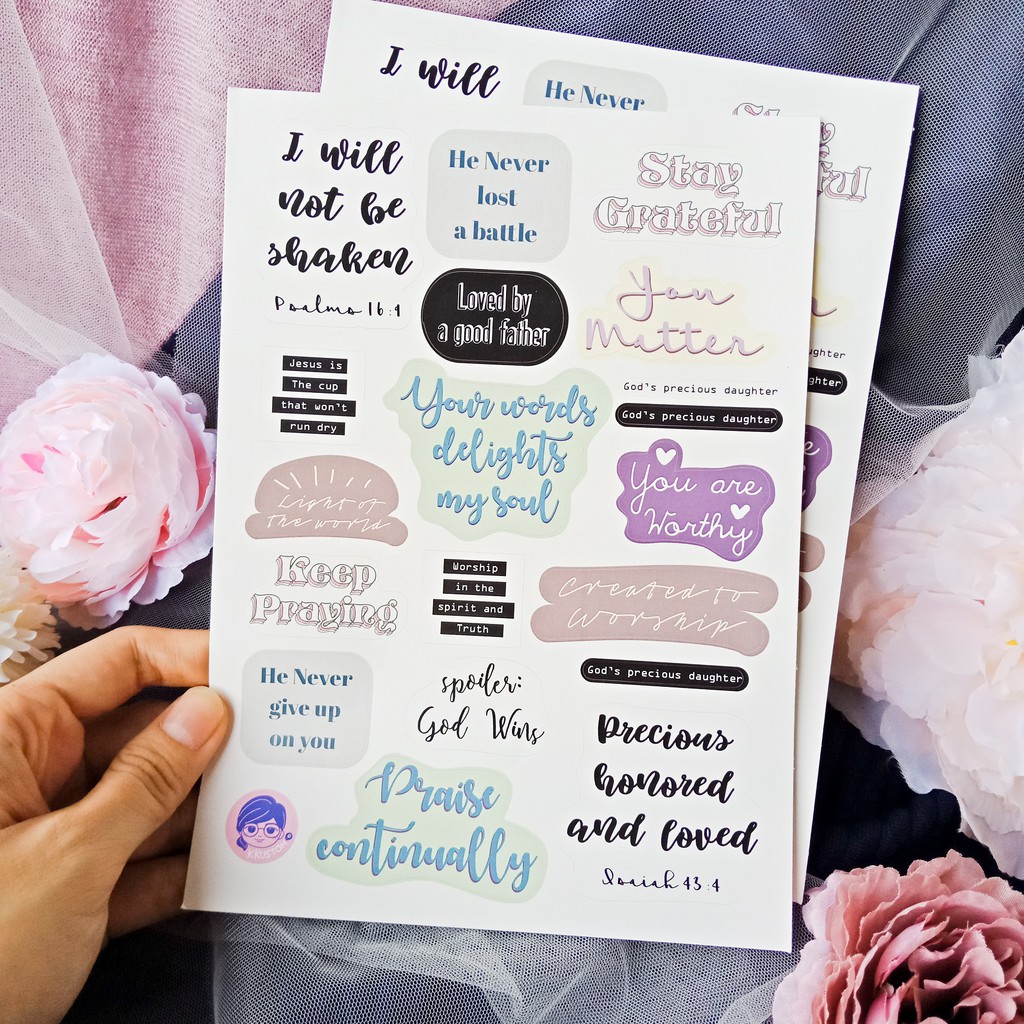 I will
He Never
Stay
ful
I will
not be
shaken
Psalms 16:4
He Never
lost
a battle
Stay
Grateful
Loved by
a good father
You
Matter
Jesus is
The cup
that won't
run dry
Your words
delights
my soul
God's precious daughter
God's precious daughter
daughter
You are
Worthy
Light of
the world
Keep
Praying
Worship
in the
spirit and
Truth
Created to
Worship
He Never
give up
on you
spoiler:
God Wins
God's precious daughter
Precious
honored
and loved
Isaiah 43:4
Praise
continually